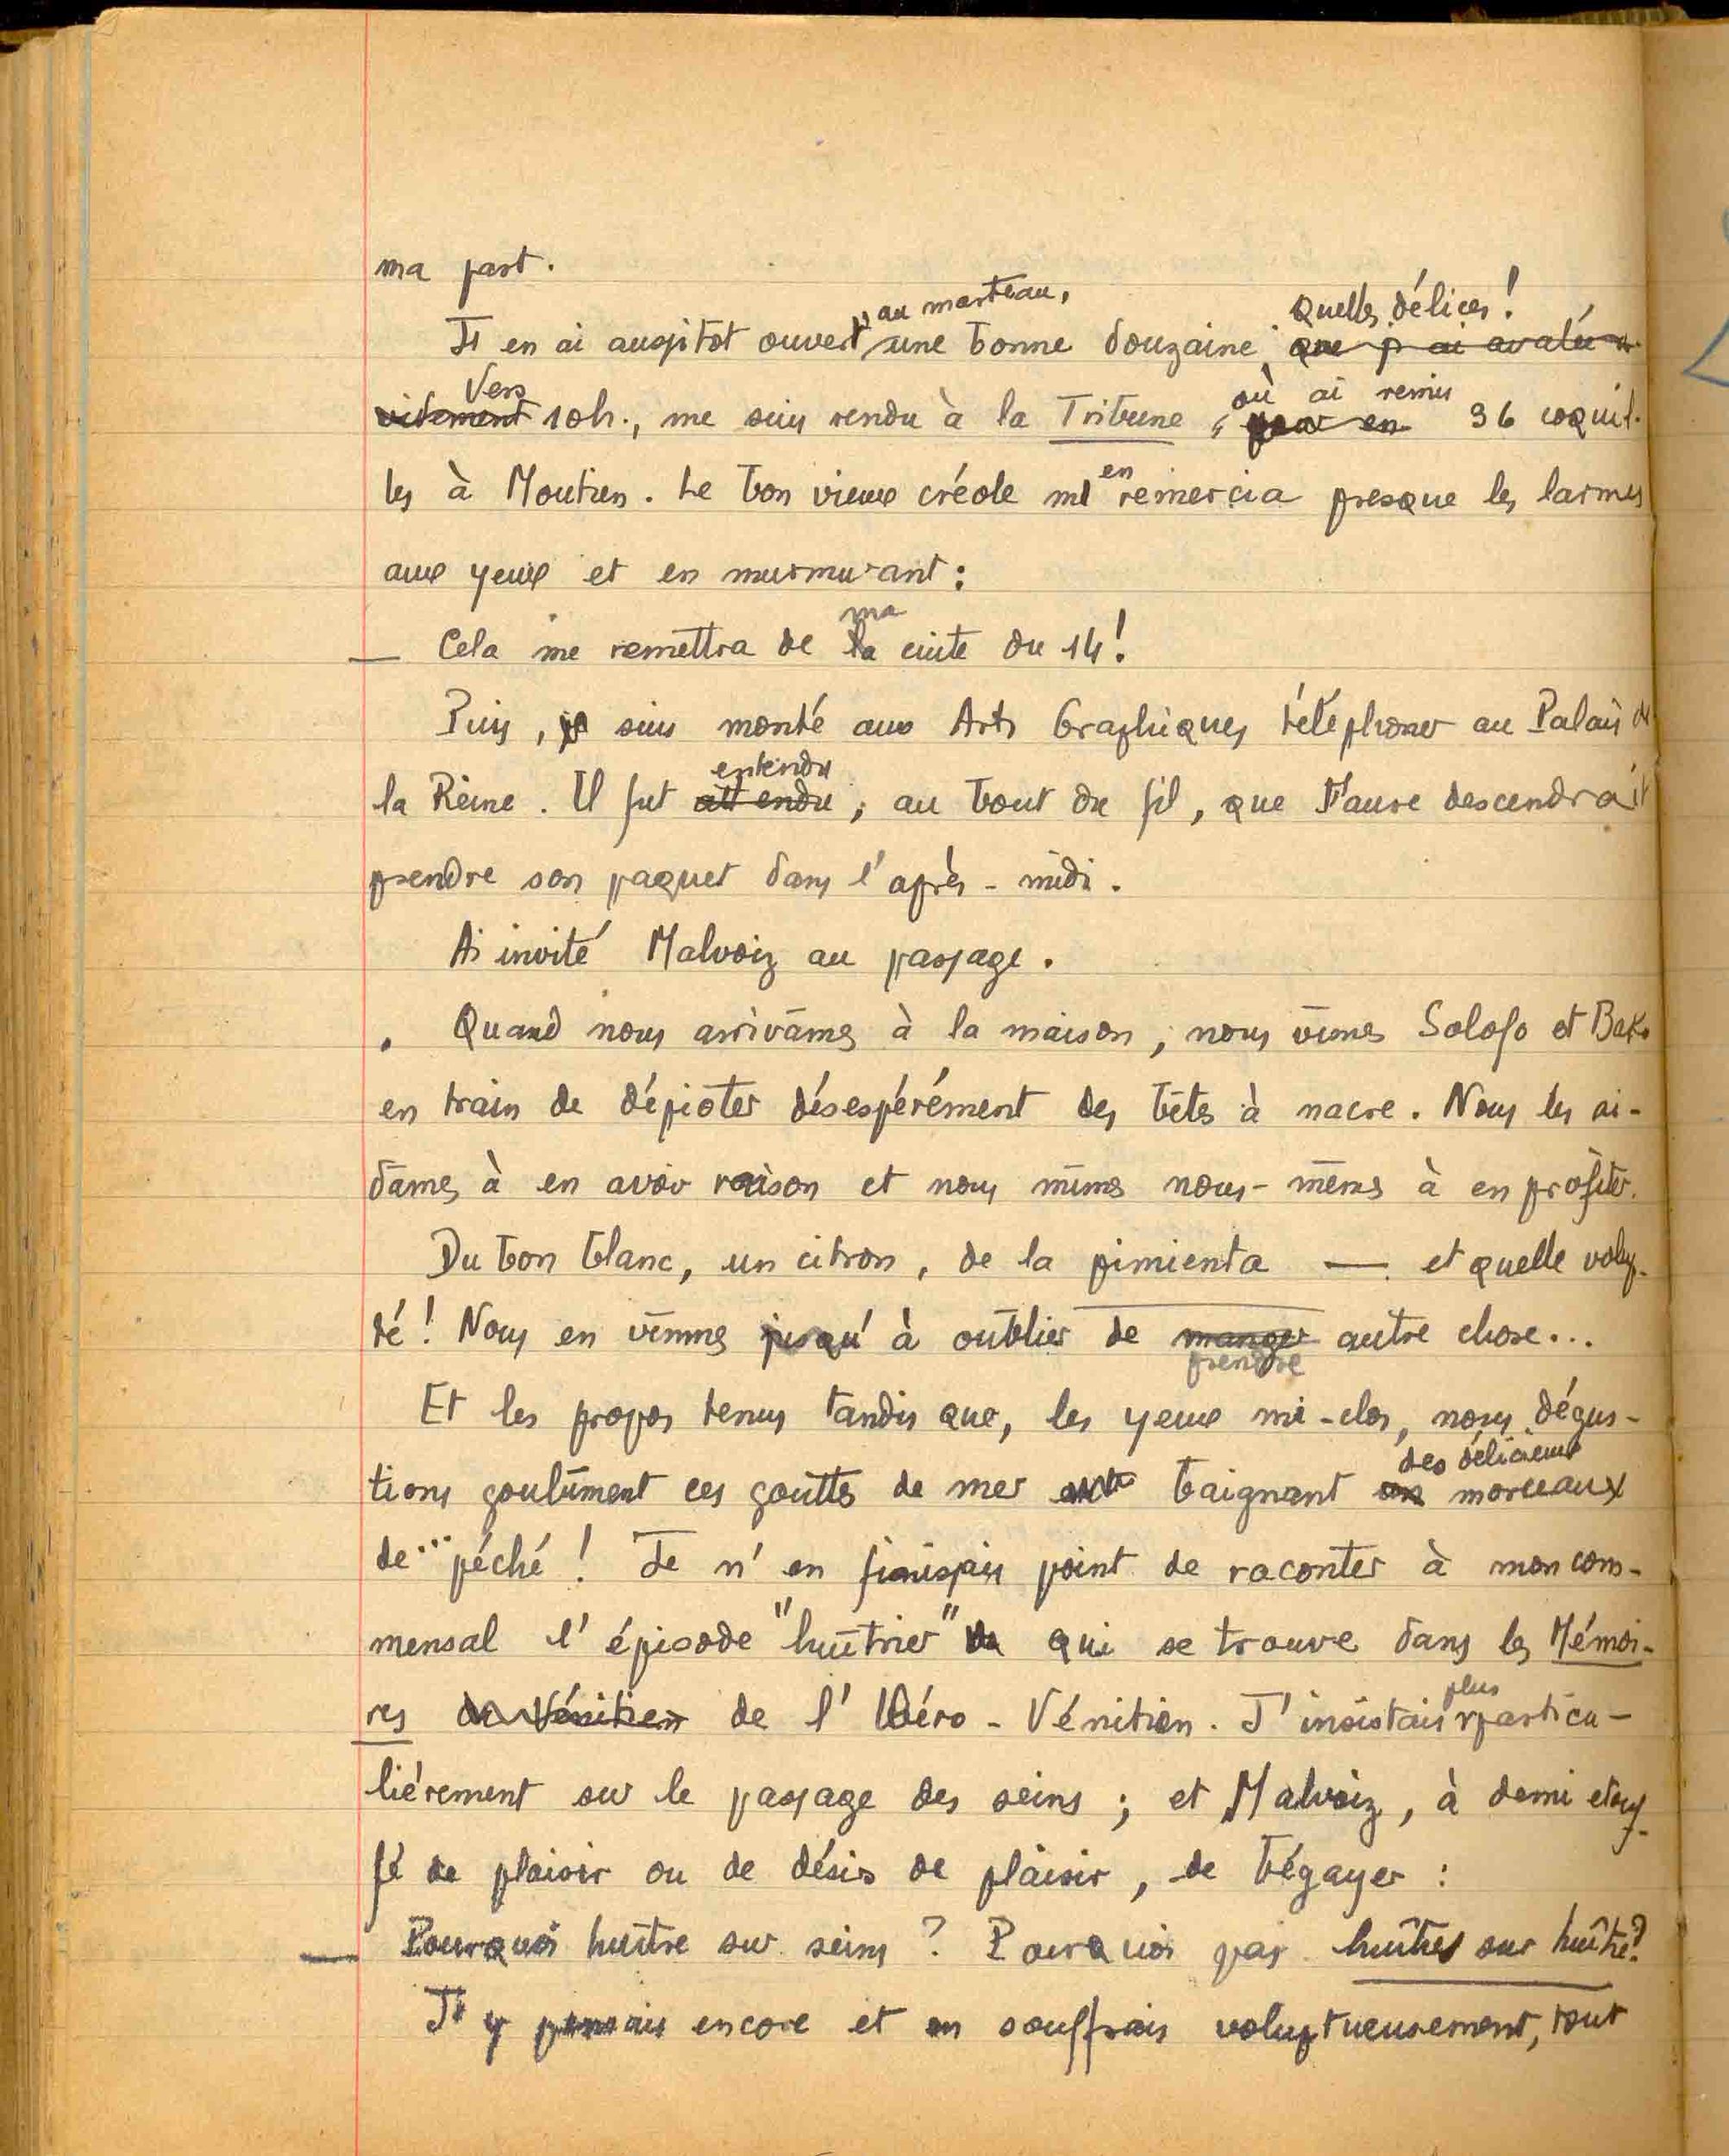 ma part.
au marteau,
Quelles délices !
J'en ai aussitôt ouvert, une bonne douzaine. que j'ai avalée
Vers
où ai remis
vitement 10h., me suis rendu à la Tribune, pour en 36 coquil-
les à Moutien. Le bon vieux créole m'en remercia presque les larmes
aux yeux et en murmurant :
ma
— Cela me remettra de la cuite du 14 !
Puis, je suis monté aux Arts Graphiques téléphoner au Palais de
entendu
la Reine. Il fut attendu, au bout du fil, que Faure descendrait
prendre son paquet dans l'après-midi.
Ai invité Malvoiz au passage.
. Quand nous arrivâmes à la maison, nous vîmes Solofo et Bako
en train de dépioter désespérément des bêtes à nacre. Nous les ai-
dâmes à en avoir raison et nous mîmes nous-mêmes à en profiter.
Du bon blanc, un citron, de la pimienta — et quelle volup-
té ! Nous en vînmes jusqu'à oublier de manger autre chose...
prendre
Et les propos tenus tandis que, les yeux mi-clos, nous dégus-
des délicieux
tions goulûment ces gouttes de mer baignant morceaux
de... péché ! Je n'en finissais point de raconter à mon com-
mensal l'épisode "huîtrier" qui se trouve dans les Mémoi-
plus
res du Vénitien de l'Ibéro-Vénitien. J'insistais particu-
lièrement sur le passage des seins ; et Malvoiz, à demi etouf-
fé de plaisir ou de désir de plaisir, de bégayer :
— Pourquoi huître sur seins ? Pourquoi pas huîtres sur huître ?
J'y pensais encore et en souffrais voluptueusement, tout